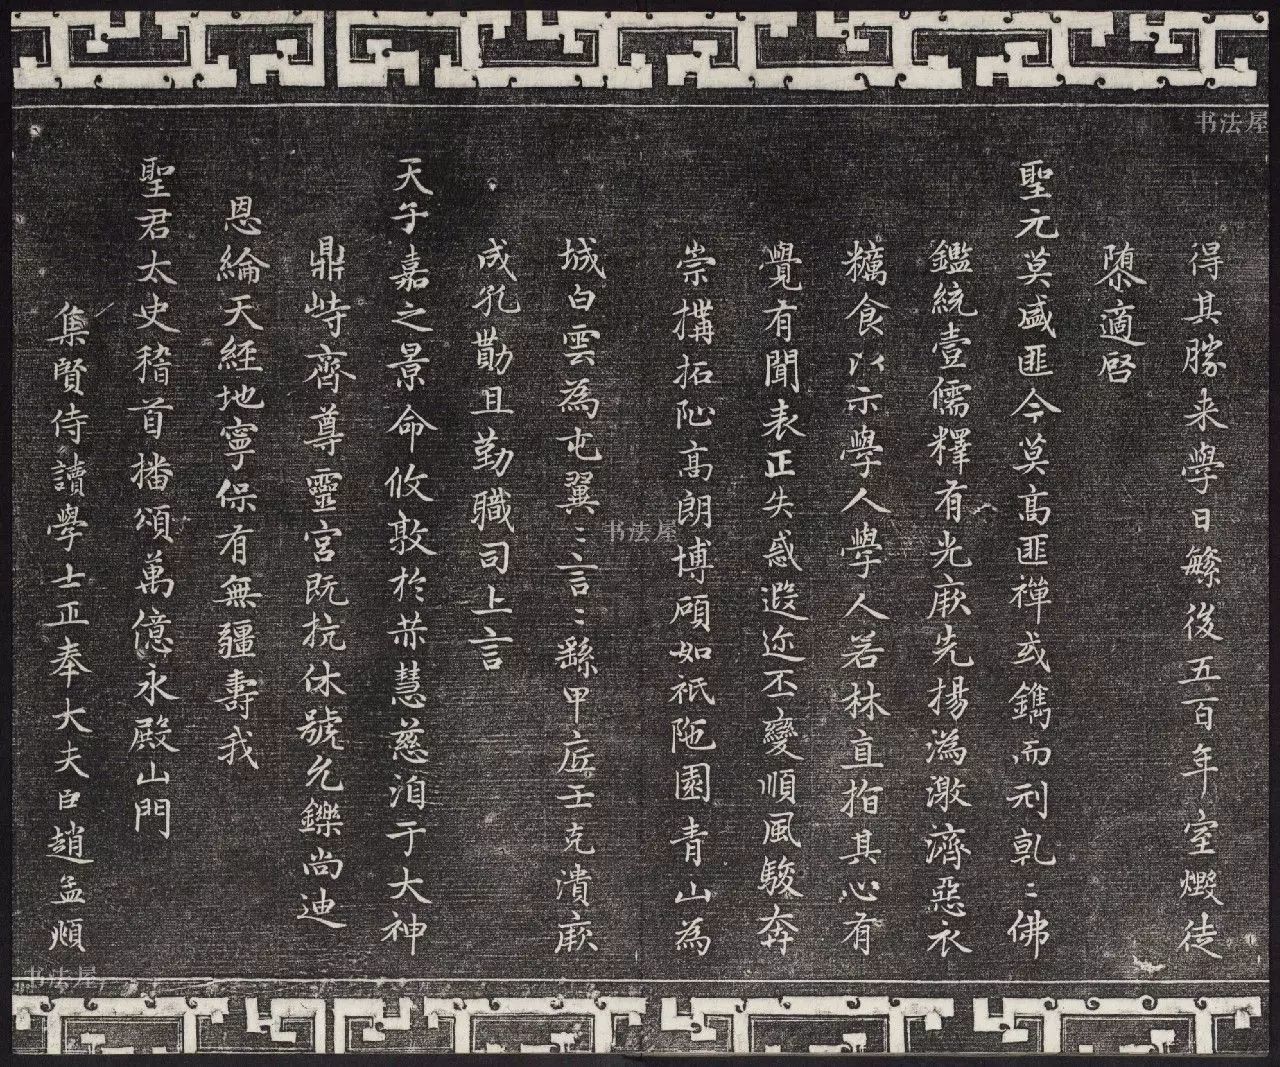 得其勝来學日繁後五百年室燬徒
隳適啓
聖元莫盛匪今莫高匪禪或鐫而刓乳〻佛
鑑統壹儒釋有光厥先揚溈激濟惡衣
糲食以示學人學人若林直指其心有
覺有聞表正失惑遐迩丕變順風駿奔
崇搆拓阯高朗博碩如祇陁園青山為
城白雲為屯翼〻言〻繇甲底壬克潰厥
成孔勩且勤職司上言
天子嘉之景命攸敦於赫慧慈洎于大神
鼎峙齊尊靈宮既抗休號允鑠尚迪
恩綸天經地寧保有無疆壽我
聖君太史稽首播頌萬億永殿山門
集賢侍讀學士正奉大夫臣趙孟頫
书法屋
书法屋
书法屋